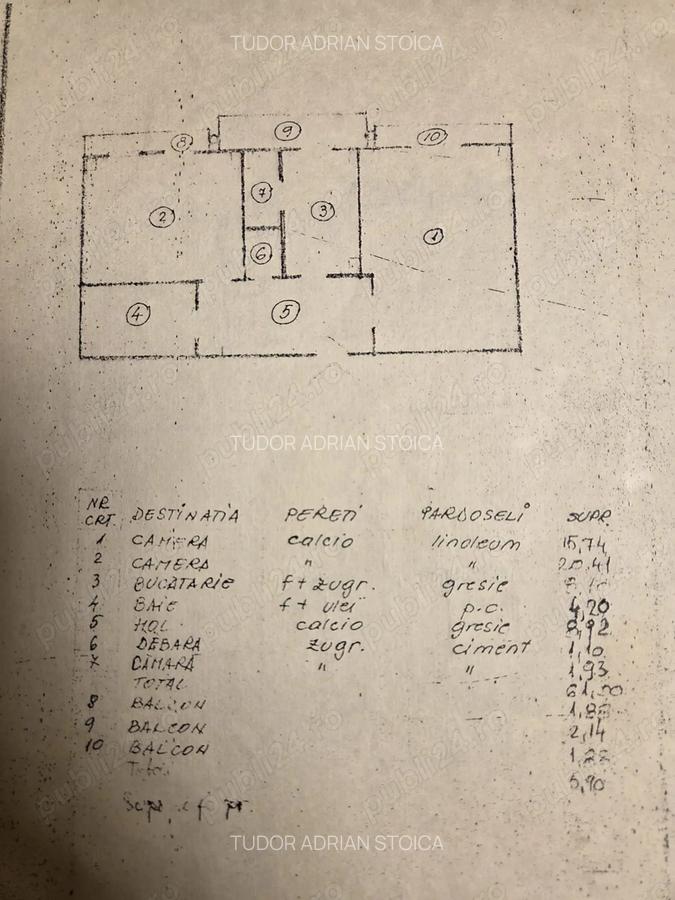 TUDOR ADRIAN STOICA
8
9
10
2
7
3
1
6
4
5
TUDOR ADRIAN STOICA
NR CRT. DESTINATIA PERETI PARDOSELI SUPR.
1 CAMERA calcio linoleum 15,74
2 CAMERA " " 20,41
3 BUCATARIE f+zugr. gresie
4 BAIE f+ulei p.c. 4,20
5 HOL calcio gresie 8,92
6 DEBARA zugr. ciment 1,10
7 CĂMARĂ " " 1,93
TOTAL
8 BALCON
9 BALCON 2,14
10 BALCON
5,90
TUDOR ADRIAN STOICA